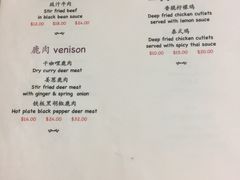 豉汁牛肉
Stir fried beef
in black bean sauce
$12.00 $18.00 $24.00
鹿肉 venison
干咖哩鹿肉
Dry curry deer meat
姜葱鹿肉
Stir fried deer meat
with ginger & spring onion
铁板黑胡椒鹿肉
Hot plate black pepper deer meat
$16.00 $24.00 $32.00
香脆柠檬鸡
Deep fried chicken cutlets
served with lemon sauce
泰式鸡
Deep fried chicken cutlets
served with spicy thai sauce
$10.00 $15.00 $20.00